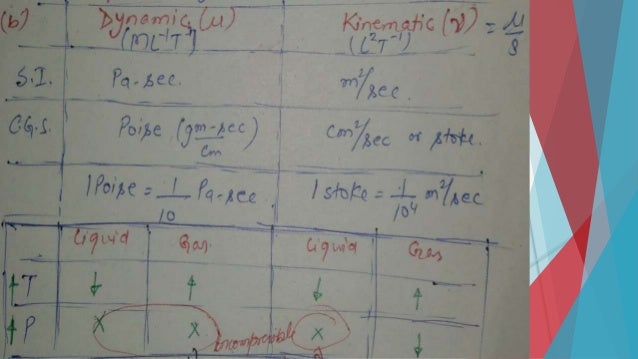 (b) Dynamic (μ) Kinematic (ν) = μ/ρ
(ML⁻¹T⁻¹) (L²T⁻¹)
S.I. Pa-sec. m²/sec.
C.G.S. Poise (gm-sec/cm) cm²/sec or stoke.
1 Poise = 1/10 Pa-sec. 1 stoke = 1/10⁴ m²/sec
Liquid Gas. Liquid Gas
↑T ↓ ↑ ↓ ↑
↑P X X Incompressible X ↓